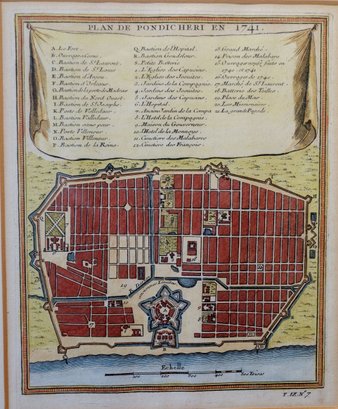 PLAN DE PONDICHERI EN 1741.
A. Le Fort.
B. Ouvrage à Corne
C. Bastion de St. Laurent
D. Bastion de St. Louis
E. Bastion d'Anjou
F. Bastion d'Orleans
G. Bastion de la porte de Madras
H. Bastion du Nord Ouest
I. Bastion de St. Joseph
K. Porte de Valdaour
L. Bastion Valladour
M. Bastion sans peur
N. Porte Villenour
O. Bastion Villenour
P. Bastion de la Reine
Q. Bastion de l'Hopital
R. Bastion Goudelour
S. Petite Batterie
1. L'Eglise des Capucins
2. L'Eglise des Jesuites
3. Jardin de la Compagnie
4. Jardins des Jesuites
5. Jardins des Capucins
6. L'Hopital
7. Ancien Jardin de la Comp.
8. L'Hotel de la Compagnie
9. Maison du Gouverneur
10. l'Hotel de la Monnoye
11. Cimetiere des Malabares
12. Cimetiere des François
13. Grand Marché
14. Prison des Malabares
15. Ouvrages faits en
1740 et 1741
16. Ouvrages de 1741
17. Marché de St. Laurent
18. Batterie des Tuiles
19. Place du Mas
20. Les Missionaires
21. La grande Pagode
Echelle
100 200 300 400 500 Toises
T. IX. N.° 7